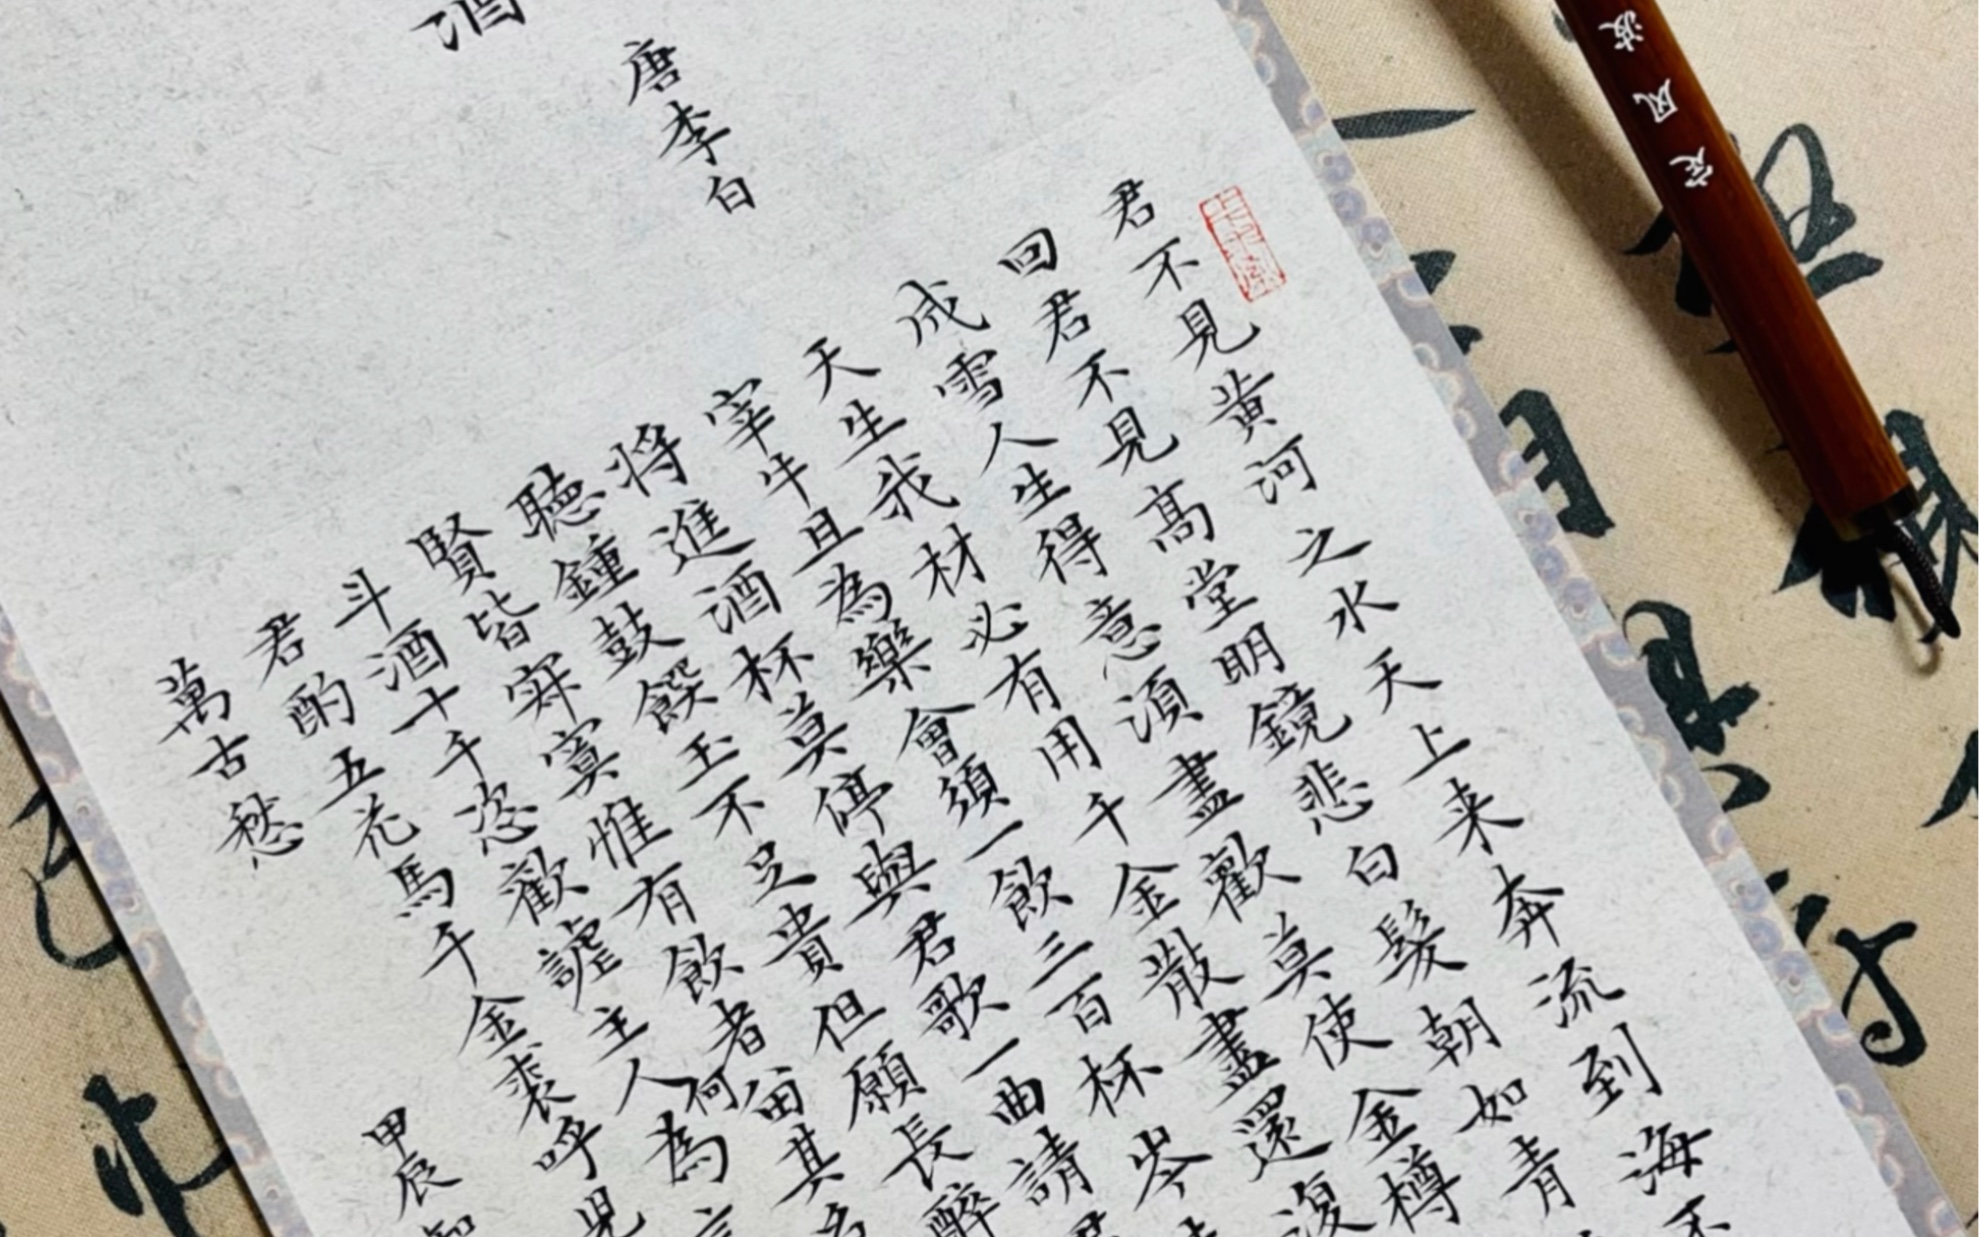 酒
唐李白
君不見黃河之水天上来奔流到海不
回君不見高堂明鏡悲白髮朝如青
成雪人生得意湏盡歡莫使金樽
天生我材必有用千金散盡還復
宰牛且為樂會須一飲三百杯岑
将進酒杯莫停與君歌一曲請君
聽鍾鼓饌玉不足貴但願長醉
賢皆寂寞惟有飲者畄其名
斗酒十千恣歡謔主人何為言
君酌五花馬千金裘呼児
萬古愁
甲辰